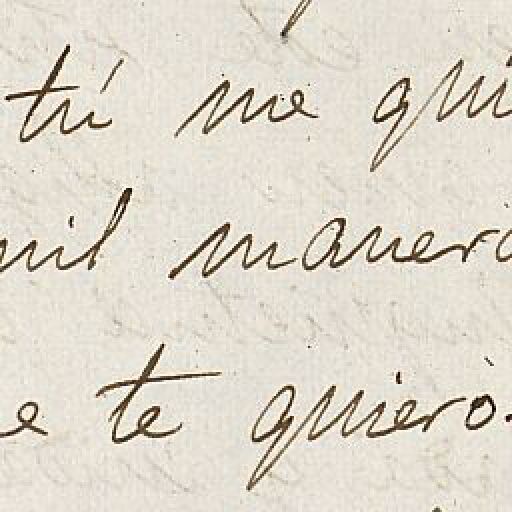 tú me qui
mil manera
e te quiero.